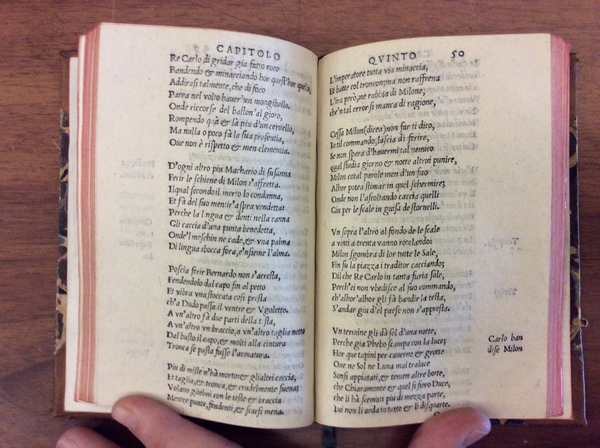 CAPITOLO
Re Carlo di gridar gia fatto roco
Bandendo & minacciando hor quest'hor quello,
Addirasi talmente, che di foco
Parea nel volto hauer' vn mongibello.
Onde riccorse del baston'al gioro,
Rompendo quà & là piu d'un ceruello,
Ma nulla o poco fà la sua presentia,
Oue non è rispetto & men clementia.
D'ogni altro piu Machario di susanna
Ferir le schiene di Milon s'affretta.
Ilqual secondo il merto lo condanna,
Et fà del suo mentir' aspra vendetta:
Perche la lingua & denti nella canna
Gli caccia d'una punta benedetta,
Onde'l meschin ne cade, & vna palma
Di lingua sbocca fora, e'nsieme l'alma.
Poscia ferir Bernardo non s'arresta,
Fendendolo dal capo fin al petto
Et vibra vna stoccata così presta
ch'a Dudo passa il ventre & Vgoletto.
A vn'altro fà due parti della testa,
A vn'altro vn braccio, a vn'altro taglia netto
Dal busto il capo, & molti alla cintura
Tronca se pasta fusse l'armatura.
Piu di mille n'hà morto & gli altri caccia,
it taglia, & tronca, & crudelmente suena;
Volano gielmi con le teste & braccia,
Mentre punte, fendenti, & scarsi mena.
QVINTO 50
L'imperatore tutta via minaccia,
Et batte col troncon, ma non raffrena
L'ira però, ne rabbia di Milone,
che'n tal error se manca di ragione,
Cessa Milon (dicea) non far ti dico,
Io tel commando, lascia di ferire,
Se non spera d'hauermi tal nemico
qual studia giorno & notte altrui punire,
Milon cotal parole men d'un fico
Alhor potea stimar in quel schermire;
Onde non l'ascoltando caccia quelli
Giu per le scale in guisa de stornelli.
Vn sopra l'altro al fondo de le scale
a vinti a trenta vanno rotolando:
Milon sgombra di lor tutte le Sale,
Fin su la piazza i traditor cacciando;
Di che Re Carlo in tanta furia sale,
Perch'ei non vbedisce al suo commando,
ch'alhor'alhor gli fà bandir la testa,
S'andar giu d'el paese non s'appresta.
Vn termine gli dà sol d'una notte,
Perche gia Phebo scampa con la luce;
Hor que tapini per cauerne & grotte
Oue ne Sol ne Luna mai traluce
Sonsi appiattati, & temon altre botte,
che Chiaramonte & quel si fiero Duce,
che li hà scemati piu di mezza parte,
Lui non li arda in tutto & li disquarte.
Carlo ban
disce Milon